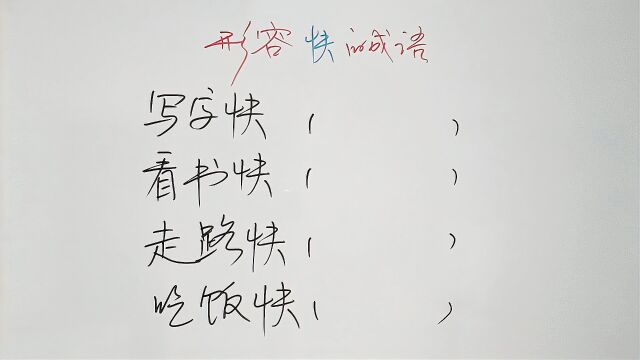 形容快的成语
写字快（ ）
看书快（ ）
走路快（ ）
吃饭快（ ）